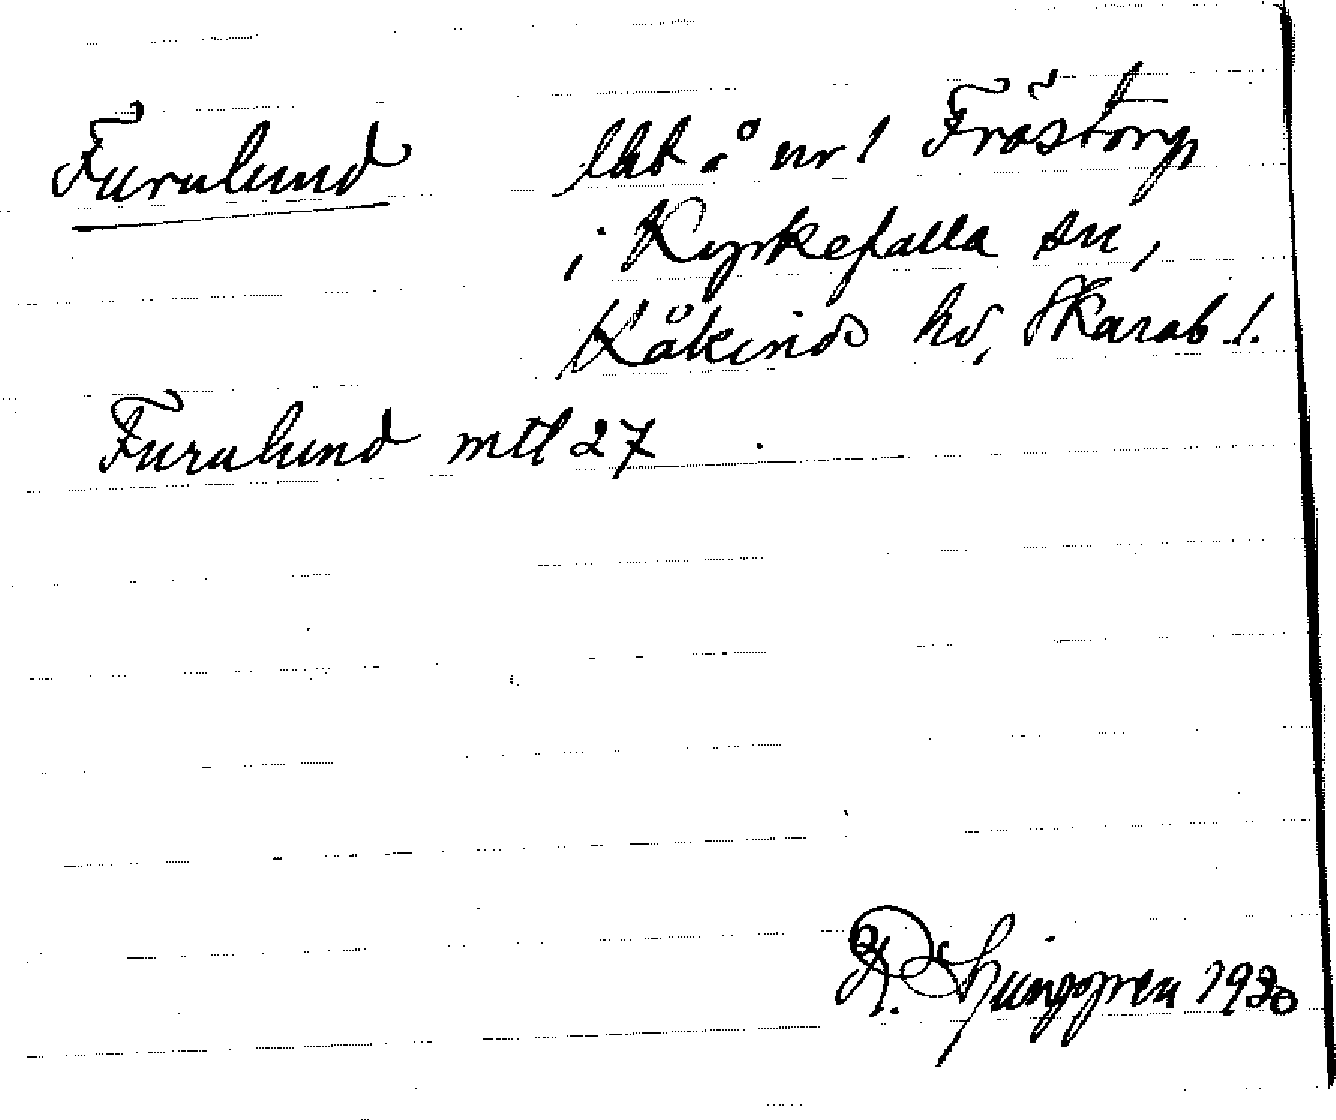 Furulund lht å nr 1 Fröstorp
i Kyrkefalla sn,
Kåkinds hd, Skarab. l.
Furulund mtl 27
R. Ljunggren 1920